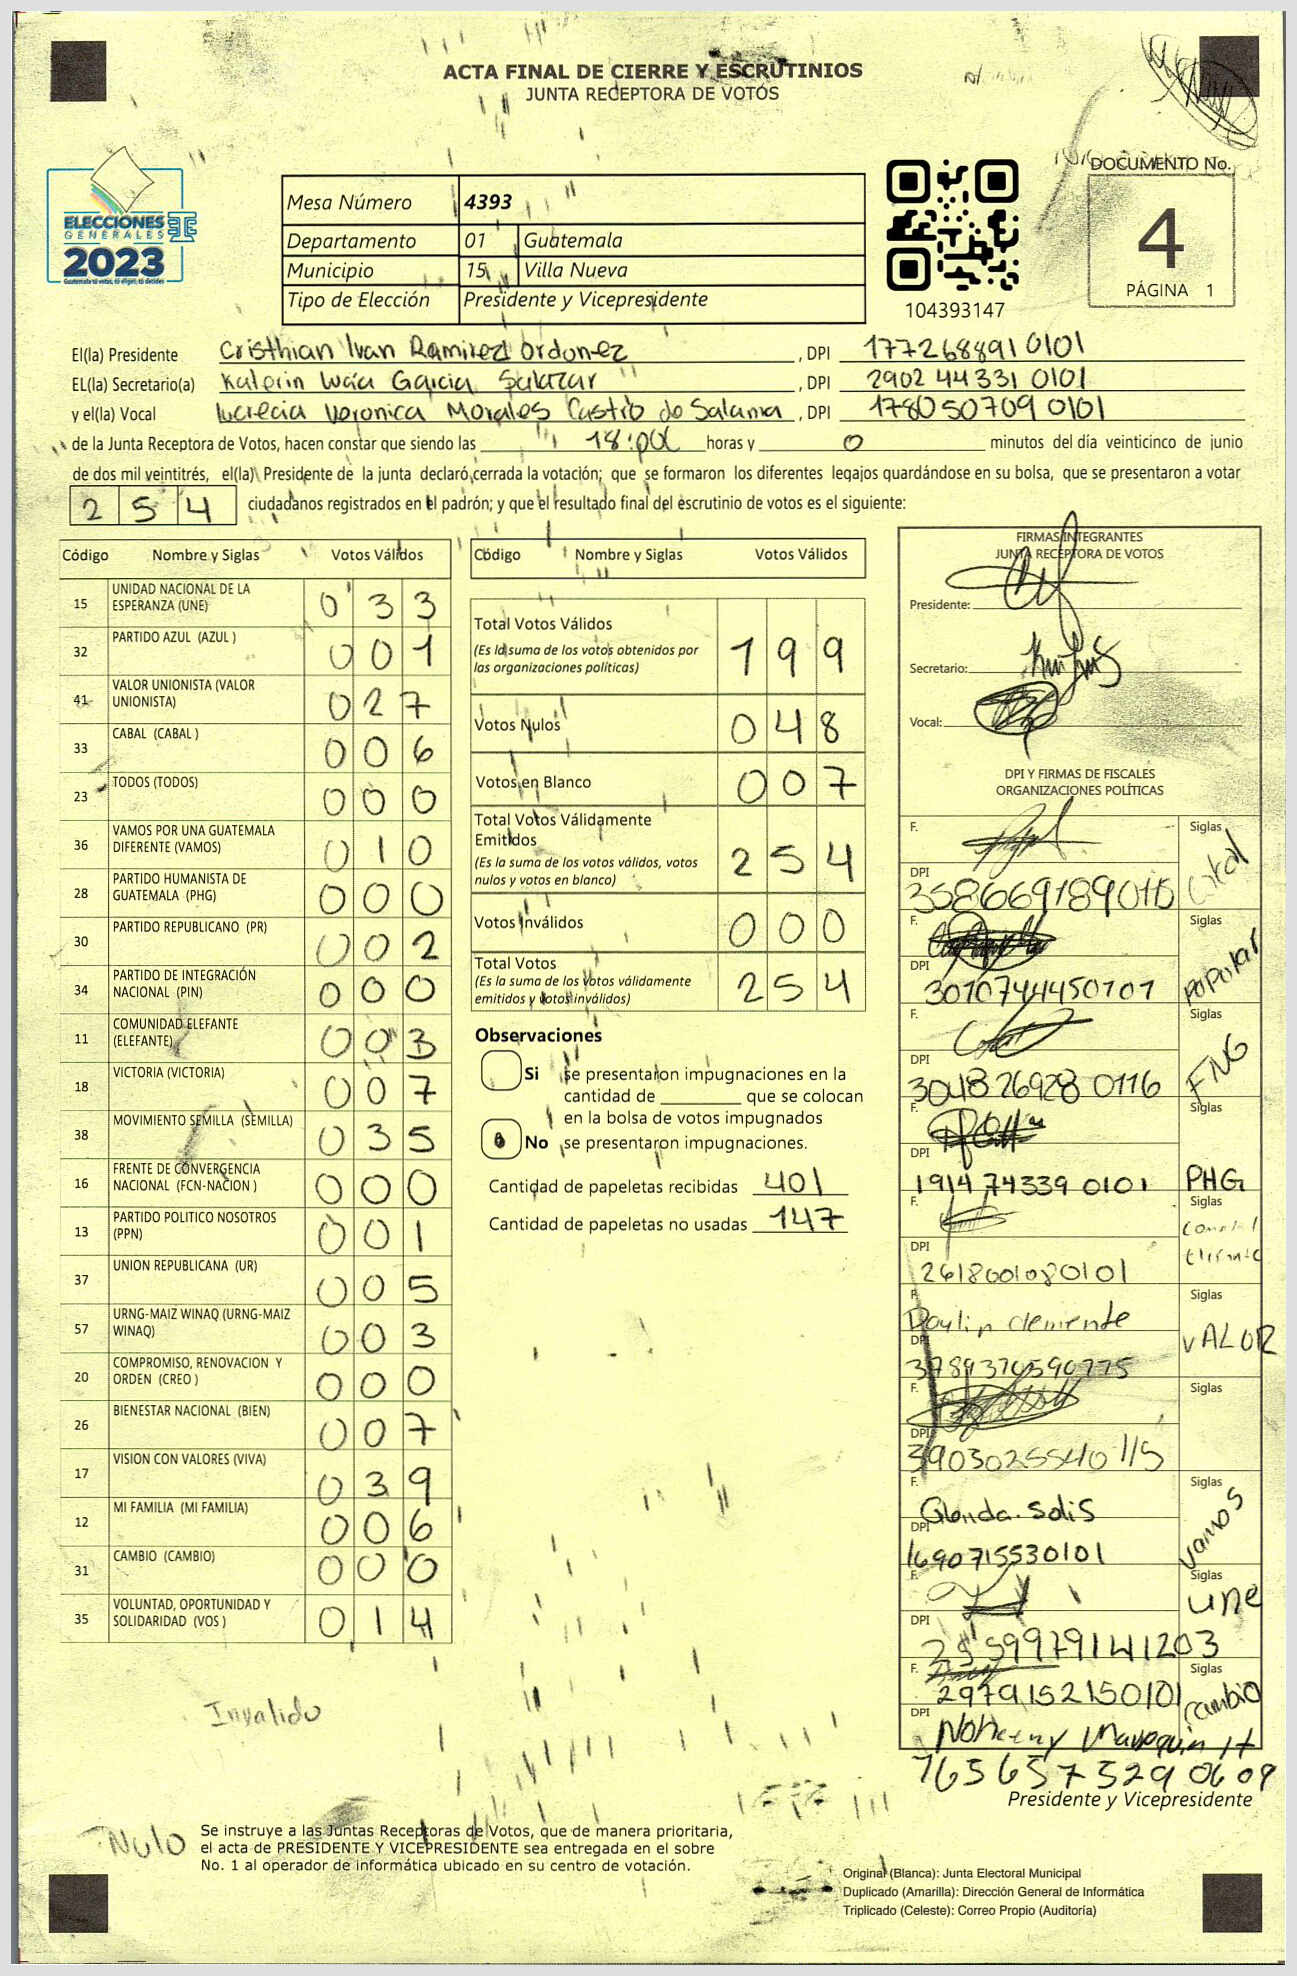 ACTA FINAL DE CIERRE Y ESCRUTINIOS
JUNTA RECEPTORA DE VOTOS
DOCUMENTO No.
4
PÁGINA 1
ELECCIONES
GENERALES
2023
Guatemala tú votas, tú eliges, tú decides
Mesa Número 4393
Departamento 01 Guatemala
Municipio 15 Villa Nueva
Tipo de Elección Presidente y Vicepresidente
104393147
El(la) Presidente Cristhian Ivan Ramirez Ordonez , DPI 177268891 0101
EL(la) Secretario(a) Katerin Lucía Garcia Salazar , DPI 2902 44331 0101
y el(la) Vocal Lucrecia Veronica Morales Castro de Salama , DPI 178050709 0101
de la Junta Receptora de Votos, hacen constar que siendo las 18: horas y 0 minutos del día veinticinco de junio
de dos mil veintitrés, el(la) Presidente de la junta declaró cerrada la votación; que se formaron los diferentes legajos guardándose en su bolsa, que se presentaron a votar
254 ciudadanos registrados en el padrón; y que el resultado final del escrutinio de votos es el siguiente:
Código Nombre y Siglas Votos Válidos
15 UNIDAD NACIONAL DE LA ESPERANZA (UNE) 033
32 PARTIDO AZUL (AZUL ) 001
41 VALOR UNIONISTA (VALOR UNIONISTA) 027
33 CABAL (CABAL ) 006
23 TODOS (TODOS) 000
36 VAMOS POR UNA GUATEMALA DIFERENTE (VAMOS) 010
28 PARTIDO HUMANISTA DE GUATEMALA (PHG) 000
30 PARTIDO REPUBLICANO (PR) 002
34 PARTIDO DE INTEGRACIÓN NACIONAL (PIN) 000
11 COMUNIDAD ELEFANTE (ELEFANTE) 003
18 VICTORIA (VICTORIA) 007
38 MOVIMIENTO SEMILLA (SEMILLA) 035
16 FRENTE DE CONVERGENCIA NACIONAL (FCN-NACION ) 000
13 PARTIDO POLITICO NOSOTROS (PPN) 001
37 UNION REPUBLICANA (UR) 005
57 URNG-MAIZ WINAQ (URNG-MAIZ WINAQ) 003
20 COMPROMISO, RENOVACION Y ORDEN (CREO ) 000
26 BIENESTAR NACIONAL (BIEN) 007
17 VISION CON VALORES (VIVA) 039
12 MI FAMILIA (MI FAMILIA) 006
31 CAMBIO (CAMBIO) 000
35 VOLUNTAD, OPORTUNIDAD Y SOLIDARIDAD (VOS ) 014
Código Nombre y Siglas Votos Válidos
Total Votos Válidos 199
(Es la suma de los votos obtenidos por
las organizaciones políticas)
Votos Nulos 048
Votos en Blanco 007
Total Votos Válidamente
Emitidos 254
(Es la suma de los votos válidos, votos
nulos y votos en blanco)
Votos Inválidos 000
Total Votos 254
(Es la suma de los votos válidamente
emitidos y votos inválidos)
Observaciones
Si se presentaron impugnaciones en la
cantidad de ________ que se colocan
en la bolsa de votos impugnados
No se presentaron impugnaciones.
Cantidad de papeletas recibidas 401
Cantidad de papeletas no usadas 147
FIRMAS INTEGRANTES
JUNTA RECEPTORA DE VOTOS
Presidente:
Secretario:
Vocal:
DPI Y FIRMAS DE FISCALES
ORGANIZACIONES POLÍTICAS
F. Siglas
DPI
F. Siglas
DPI 3010744450101 Popular
F. Siglas
DPI 304826928 0116 FNG
F. Siglas
DPI 1914 74339 0101 PHG
F. Siglas
DPI 2618001080101
F. clemente Siglas
DPI VALOR
F. Siglas
DPI
F. Glenda. Solis Siglas
DPI 1690715530101 Vamos
F. Siglas
DPI une
F. Siglas
2979152150101 cambio
DPI
765657529 0609
Presidente y Vicepresidente
Invalido
Nulo
Se instruye a las Juntas Receptoras de Votos, que de manera prioritaria,
el acta de PRESIDENTE Y VICEPRESIDENTE sea entregada en el sobre
No. 1 al operador de informática ubicado en su centro de votación.
Original (Blanca): Junta Electoral Municipal
Duplicado (Amarilla): Dirección General de Informática
Triplicado (Celeste): Correo Propio (Auditoría)